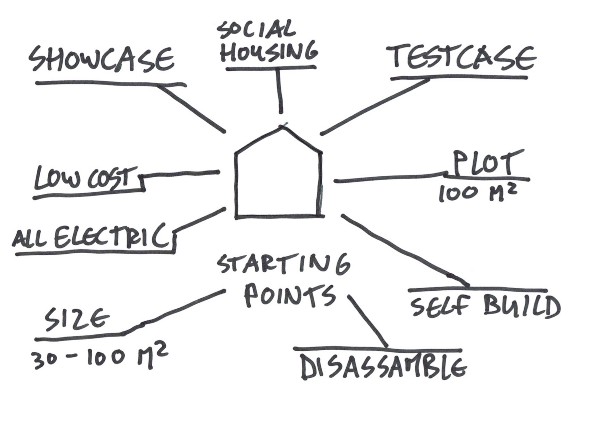 SOCIAL
HOUSING
SHOWCASE
TESTCASE
LOW COST
PLOT
100 M²
ALL ELECTRIC
STARTING
POINTS
SELF BUILD
SIZE
30 - 100 M²
DISASSAMBLE